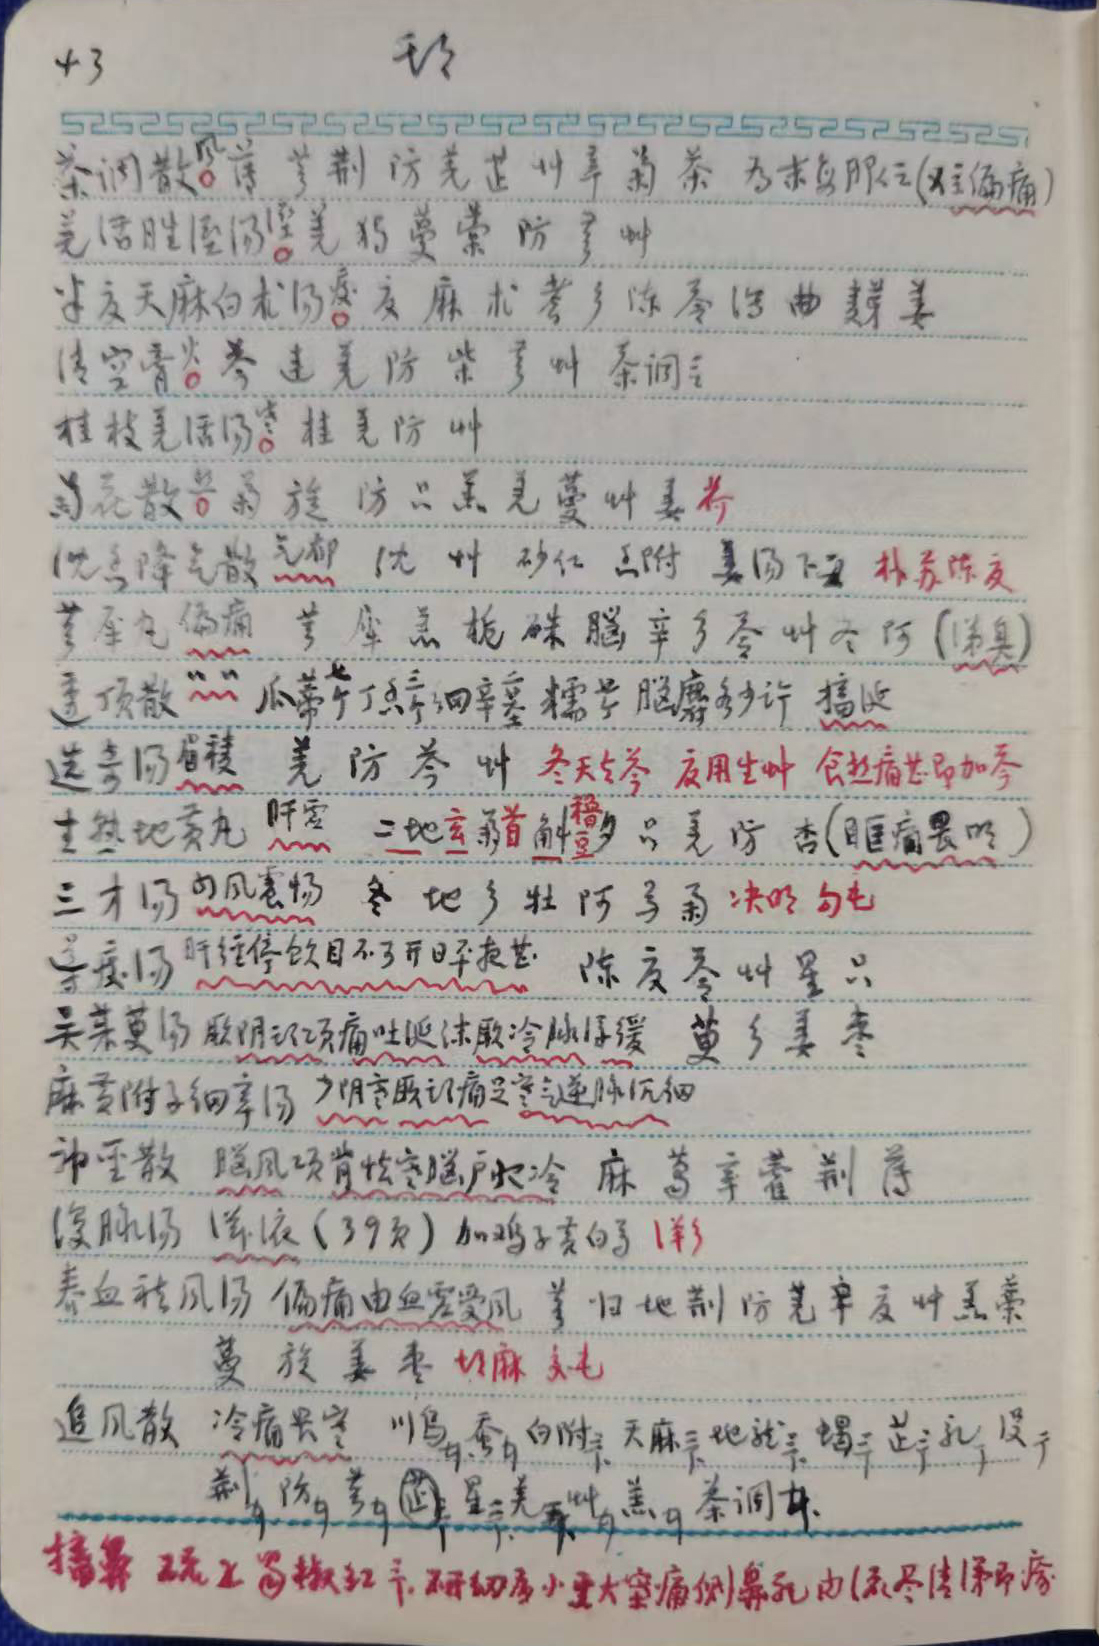 43
茶调散 风 薄 芎 荆 防 羌 芷 艸 辛 菊 茶
羌活胜湿汤 湿 羌 独 蔓 藁 防 芎 艸
半夏天麻白术汤 痰 夏 麻 术 耆 参 陈 苓 泻 曲 蘖 姜
清空膏 火 芩 连 羌 防 柴 芎 艸 茶调
桂枝羌活汤 寒 桂 羌 防 艸
菊花散 菊 旋 防 只 羔 羌 蔓 艸 姜 芩
沈香降气散 气郁 沈 艸 砂仁 香附 姜汤下 朴苏陈夏
芎犀丸 偏痛 芎 犀 羔 栀 硃 脑 辛 参 苓 艸 冬 阿 (涕臭)
透顶散 〃〃 瓜蒂七个 丁香三 细辛 糯 脑麝 少许 搐涎
选奇汤 眉棱 羌 防 芩 艸 冬天去芩 夏用生艸 食热痛甚即加芩
生熟地黄丸 肝虚 二地 玄 菊 首 斛 稽豆 夕 只 羌 防 杏 (眶痛畏明)
三才汤 内风震惕 冬 地 参 牡 阿 芍 菊 决明 勾
导痰汤 肝经停饮目不了开昼夜甚 陈 夏 苓 艸 星 只
吴茱萸汤 厥阴头项痛吐涎沫厥冷脉浮缓 萸 参 姜 枣
麻黄附子细辛汤 少阴寒厥头痛足寒气逆脉沉细
神圣散 脑风项背怯寒脑户冷 麻 葛 辛 藿 荆 薄
复脉汤 液 (39页) 加鸡子黄白芍 洋参
养血祛风汤 偏痛由血虚受风 芎 归 地 荆 防 羌 辛 夏 艸 羔 藁
蔓 旋 姜 枣 胡麻
追风散 冷痛畏寒 川乌 蚕 白附 天麻 地龙 蝎 芷 乳 没
荆 防 芎 芷 星 羌 艸 羔 茶调
搐鼻 蜀椒红 研细 痛侧鼻孔内 流尽清涕即瘥